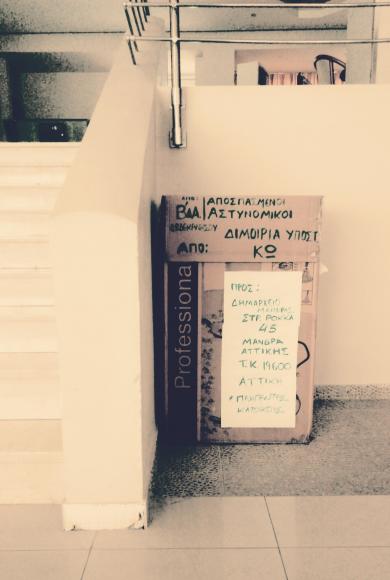 ΑΠΟ:
Β'ΔΑ
ΑΠΟΣΠΑΣΜΕΝΟΙ
ΑΣΤΥΝΟΜΙΚΟΙ
ΔΙΜΟΙΡΙΑ ΥΠΟΣΤ
ΑΠΟ: ΚΩ
Professiona
ΠΡΟΣ:
ΔΗΜΑΡΧΕΙΟ
ΜΑΝΔΡΑΣ
ΣΤΡ. ΡΟΚΚΑ
45
ΜΑΝΔΡΑ
ΑΤΤΙΚΗΣ
Τ.Κ. 19600
ΑΤΤΙΚΗ